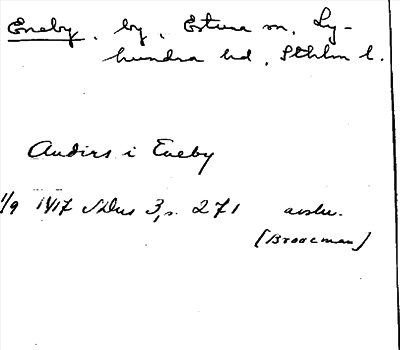 Eneby, by, Estuna sn, Ly-
hundra hd, Sthlm l.
Andirs i Eneby
1/9 1417 SDns 3, s. 271 avskr.
[Broocman]